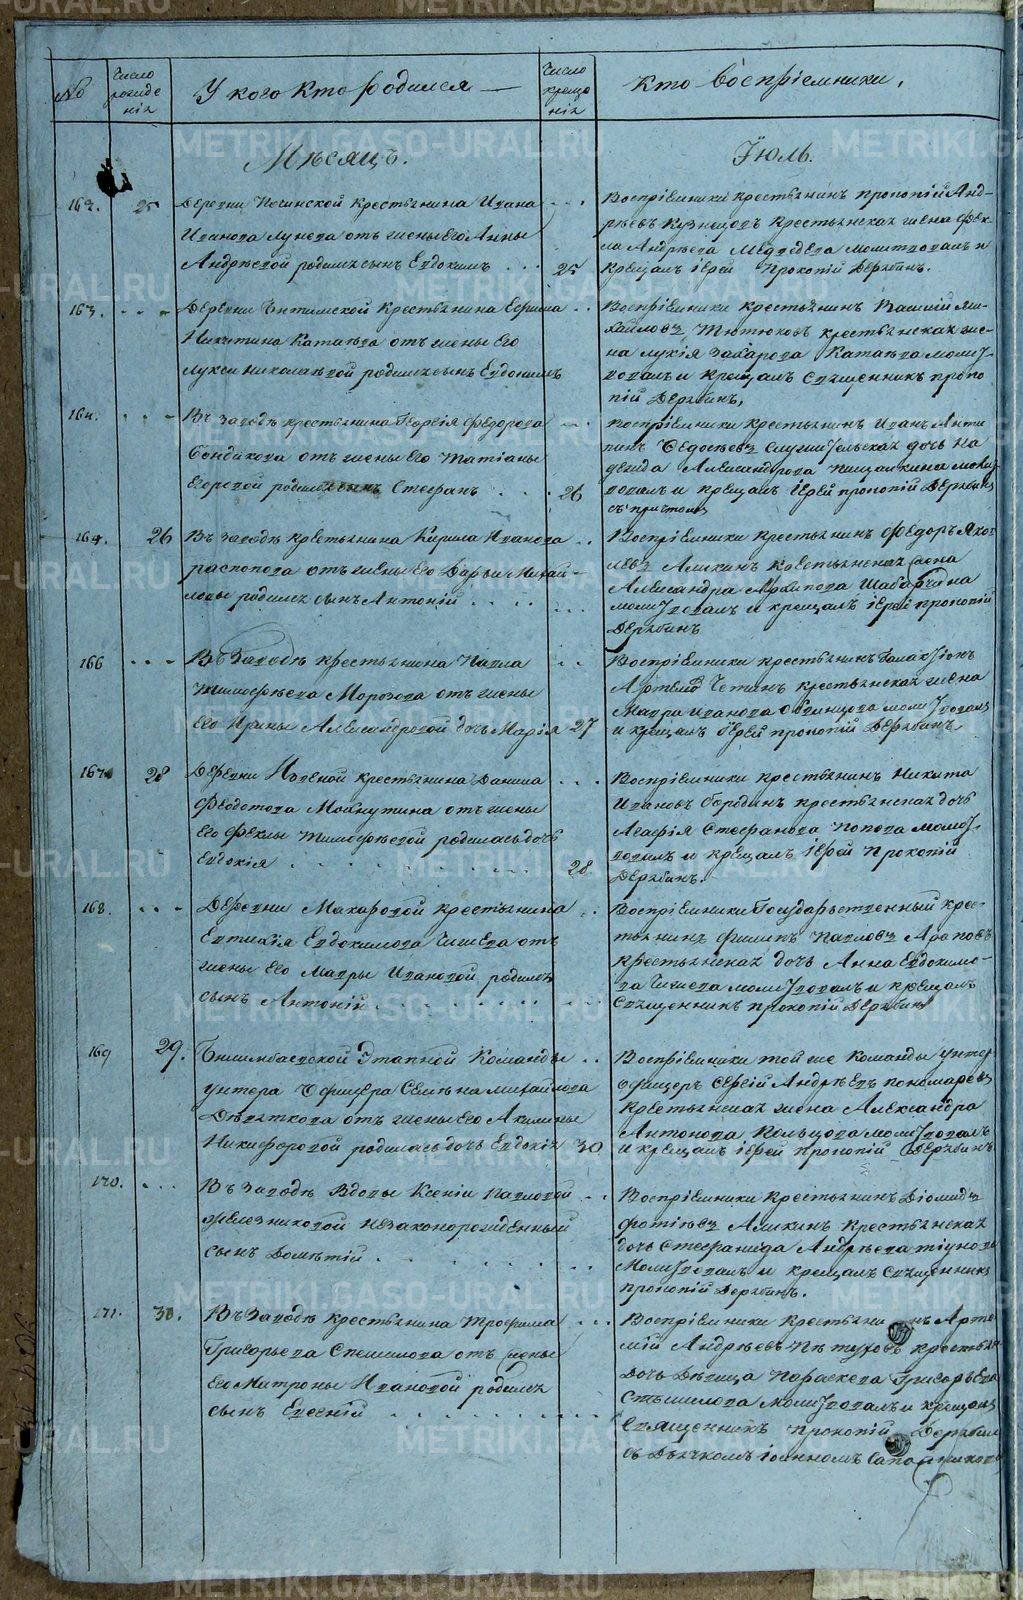 No
Число рожденія
У кого кто родился
Число крещенія
Кто восприемники,
Мѣсяцъ.
Іюль.
162. 25
Деревни Починской крестьянина Ивана
Иванова от жены его Анны
Андрѣевой родился сынъ Евдокимъ 25
Восприемники крестьянинъ Прокопій Анд-
рѣевъ Кузнецовъ крестьянская жена Фек-
ла Андрѣева Медведева молитвовалъ и
крещалъ іерей Прокопій Дерябинъ.
163.
Деревни крестьянина Ефима
Никитина Катаева отъ жены его
Лукеи Николаевой родился сынъ Евдокимъ
Восприемники крестьянинъ Василій Ми-
хайловъ Тютюковъ крестьянская же-
на Лукія Захарова Катаева молит-
вовалъ и крещалъ священникъ Проко-
пій Дерябинъ,
164.
Въ заводѣ крестьянина Георгія Федорова
Бондикова отъ жены его Татіаны
Егоровой родился сынъ Стефанъ 26
Восприемники крестьянинъ Иванъ Анти-
пинъ Федосѣевъ служительская дочь На-
дежда Александрова молит-
вовалъ и крещалъ іерей Прокопій Дерябинъ
съ причтомъ
164. 26
Въ заводѣ крестьянина Кирила Иванова
Распопова отъ жены его Дарьи Михай-
ловы родился сынъ Антоній
Восприемники крестьянинъ Федоръ Яков-
левъ Аликинъ крестьянская жена
Александра Архипова Шабарчина
молитвовалъ и крещалъ іерей Прокопій
Дерябинъ
166
Въ Заводѣ крестьянина Павла
Тимофѣева Морозова отъ жены
его Ирины Александровой дочь Марія 27
Восприемники крестьянинъ Галактіонъ
Артемо крестьянская жена
Мавра Иванова молитвовалъ
и крещалъ іерей Прокопій Дерябинъ,
167 28
Деревни крестьянина Данила
Федотова Мокнутина отъ жены
его Феклы Тимофѣевой родилась дочь
Евдокія 28
Восприемники крестьянинъ Никита
Ивановъ Бородинъ крестьянская дочь
Агафія Стефанова Попова молит-
вовалъ и крещалъ іерей Прокопій
Дерябинъ.
168.
Деревни Макаровой крестьянина
Евтихія Евдокимова Чижева отъ
жены его Мавры Ивановой, родился
сынъ Антоній
Восприемники Государственный крес-
тьянинъ Филипъ Павловъ Араповъ
крестьянская дочь Анна Евдокимо-
ва Чижева молитвовалъ и крещалъ
священникъ Прокопій Дерябинъ
169 29.
Билимбаевской Этапной Команды
унтера Офицера Семена Михайлова
Девяткова отъ жены его Акилины
Никифоровой родилась дочь Евдокія 30
Восприемники той же команды унтеръ
офицеръ Сергій Андрѣевъ Пономаревъ
крестьянская жена Александра
Антонова Кольцова молитвовалъ
и крещалъ іерей Прокопій Дерябинъ
170.
Въ Заводѣ вдовы Ксеніи Павловой
Железниковой незаконорожденный
сынъ Дометій
Восприемники крестьянинъ Діомидъ
Фотіевъ Аликинъ крестьянская
дочь Стефанида Андрѣева Тіунова
молитвовалъ и крещалъ священникъ
Прокопій Дерябинъ.
171. 30.
Въ Заводѣ крестьянина Трофима
Григорьева Спешилова отъ жены
его Матроны Ивановой родился
сынъ Евгеній
Восприемники крестьянинъ Арте-
мій Андрѣевъ Пѣтуховъ крестьян
дочь Дѣвица Параскева Григорьева
Спешилова молитвовалъ и крещалъ
Священникъ Прокопій Дерябинъ
съ Дьячкомъ Іоанномъ Сапожниковы
METRIKI.GASO-URAL.RU